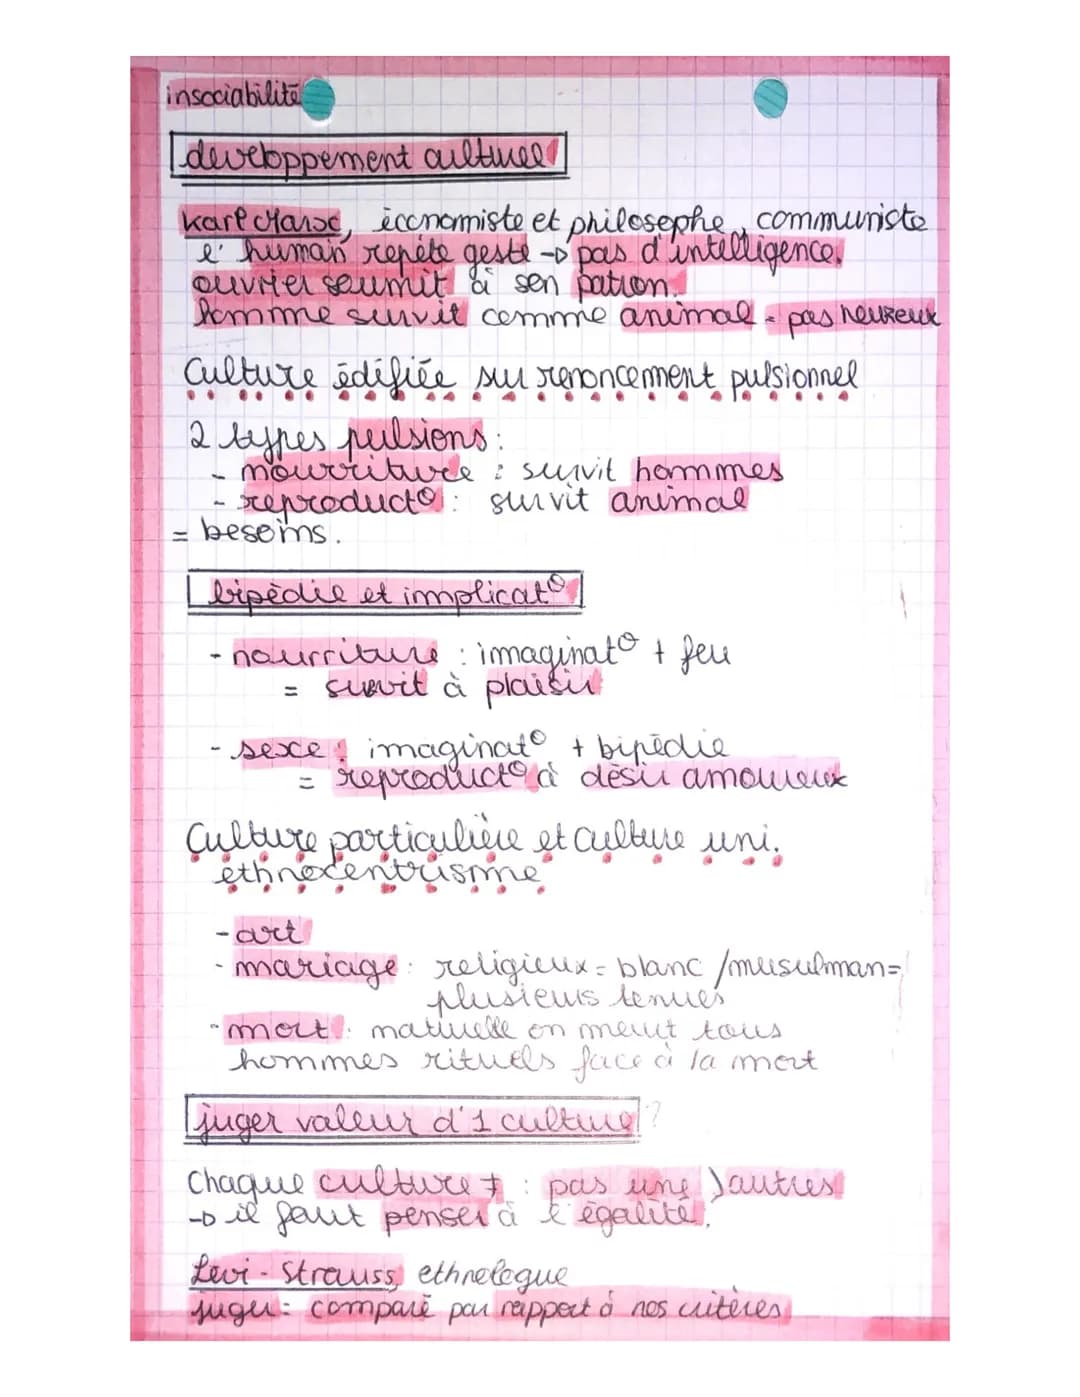 insociabilité
developpement culturel
Karl Marx, économiste et philosophe, communiste
l'human repète geste → pas d'intelligence.
ouvrier soumit à son patron.
homme survit comme animal = pas heureux
Culture édifiée sur renoncement pulsionnel
2 types pulsions :
- nourriture : survit hommes
- reproduct° : survit animal
= besoins.
bipédie et implicat°
- nourriture : imaginat° + feu
= survit à plaisir
- sexe : imaginat° + bipédie
= reproduct° à désir amoureux
Culture particulière et culture uni.
ethnocentrisme
- art
- mariage : religieux = blanc / musulman =
plusieurs tenues
- mort : naturelle on meurt tous
hommes rituels face à la mort
juger valeur d'1 culture ?
Chaque culture ≠ : pas une ) autres
→ il faut penser à l'égalité.
Levi - Strauss, ethnologue
juger = comparé par rapport à nos critères